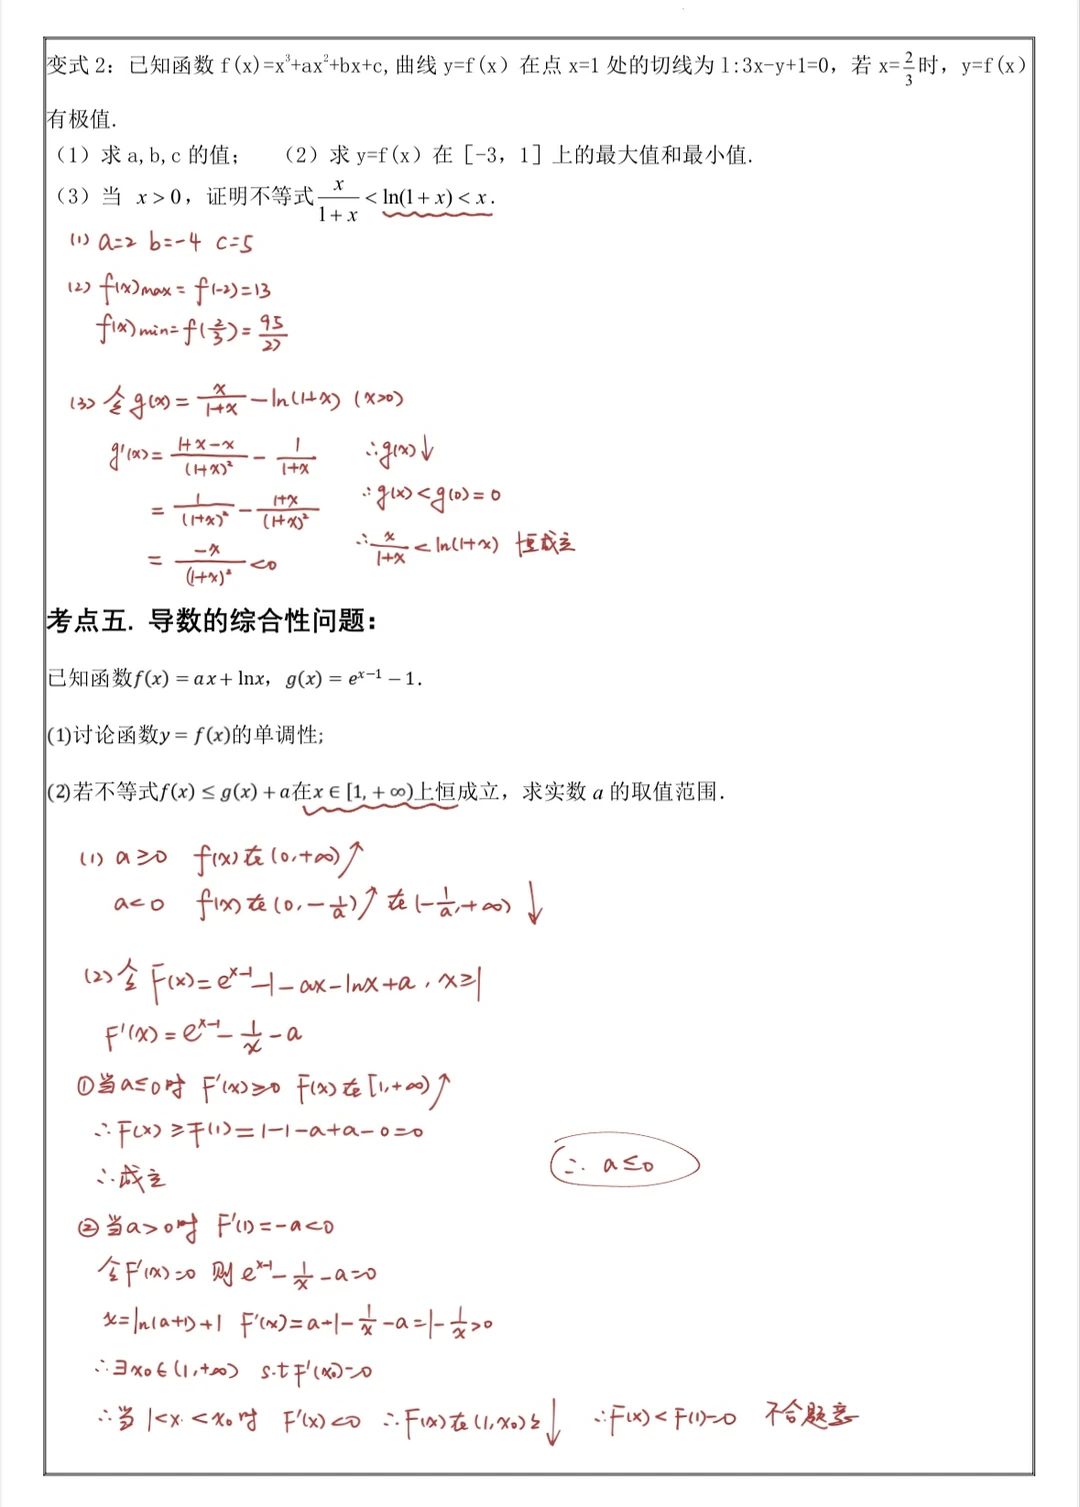 变式 2：已知函数 f(x)=x³+ax²+bx+c,曲线 y=f(x) 在点 x=1 处的切线为 l:3x-y+1=0，若 x=2/3时，y=f(x)
有极值.
（1）求 a,b,c 的值； （2）求 y=f(x) 在［-3，1］上的最大值和最小值.
（3）当 x>0，证明不等式 x/(1+x) < ln(1+x) < x.
(1) a=2 b=-4 c=5
(2) f(x)max = f(-2)=13
f(x)min=f(2/3)=95/27
(3) 令g(x)= x/(1+x) -ln(1+x) (x>0)
g'(x)= (1+x-x)/(1+x)² - 1/(1+x) ∴g(x)↓
= 1/(1+x)² - (1+x)/(1+x)² ∴g(x)<g(0)=0
= -x/(1+x)² <0 ∴ x/(1+x) <ln(1+x) 恒成立
考点五. 导数的综合性问题：
已知函数f(x) = ax + lnx，g(x) = e^(x-1) − 1.
(1)讨论函数y = f(x)的单调性;
(2)若不等式f(x) ≤ g(x) + a在x ∈ [1, +∞)上恒成立，求实数 a 的取值范围.
(1) a≥0 f(x)在(0,+∞)↑
a<0 f(x)在(0,-1/a)↑ 在(-1/a,+∞)↓
(2)令 F(x)=e^(x-1)-1-ax-lnx+a，x≥1
F'(x)=e^(x-1)-1/x-a
①当a≤0时 F'(x)≥0 F(x)在[1,+∞)↑
∴F(x)≥F(1)=1-1-a+a-0=0
∴成立
∴ a≤0
②当a>0时 F'(1)=-a<0
令F'(x)=0 则 e^(x-1)-1/x-a=0
x=ln(a+1)+1 F'(x)=a+1-1/x-a=1-1/x>0
∴∃x₀∈(1,+∞) s.t F'(x₀)=0
∴当 1<x<x₀时 F'(x)<0 ∴F(x)在(1,x₀)上↓ ∴F(x)<F(1)=0 不合题意